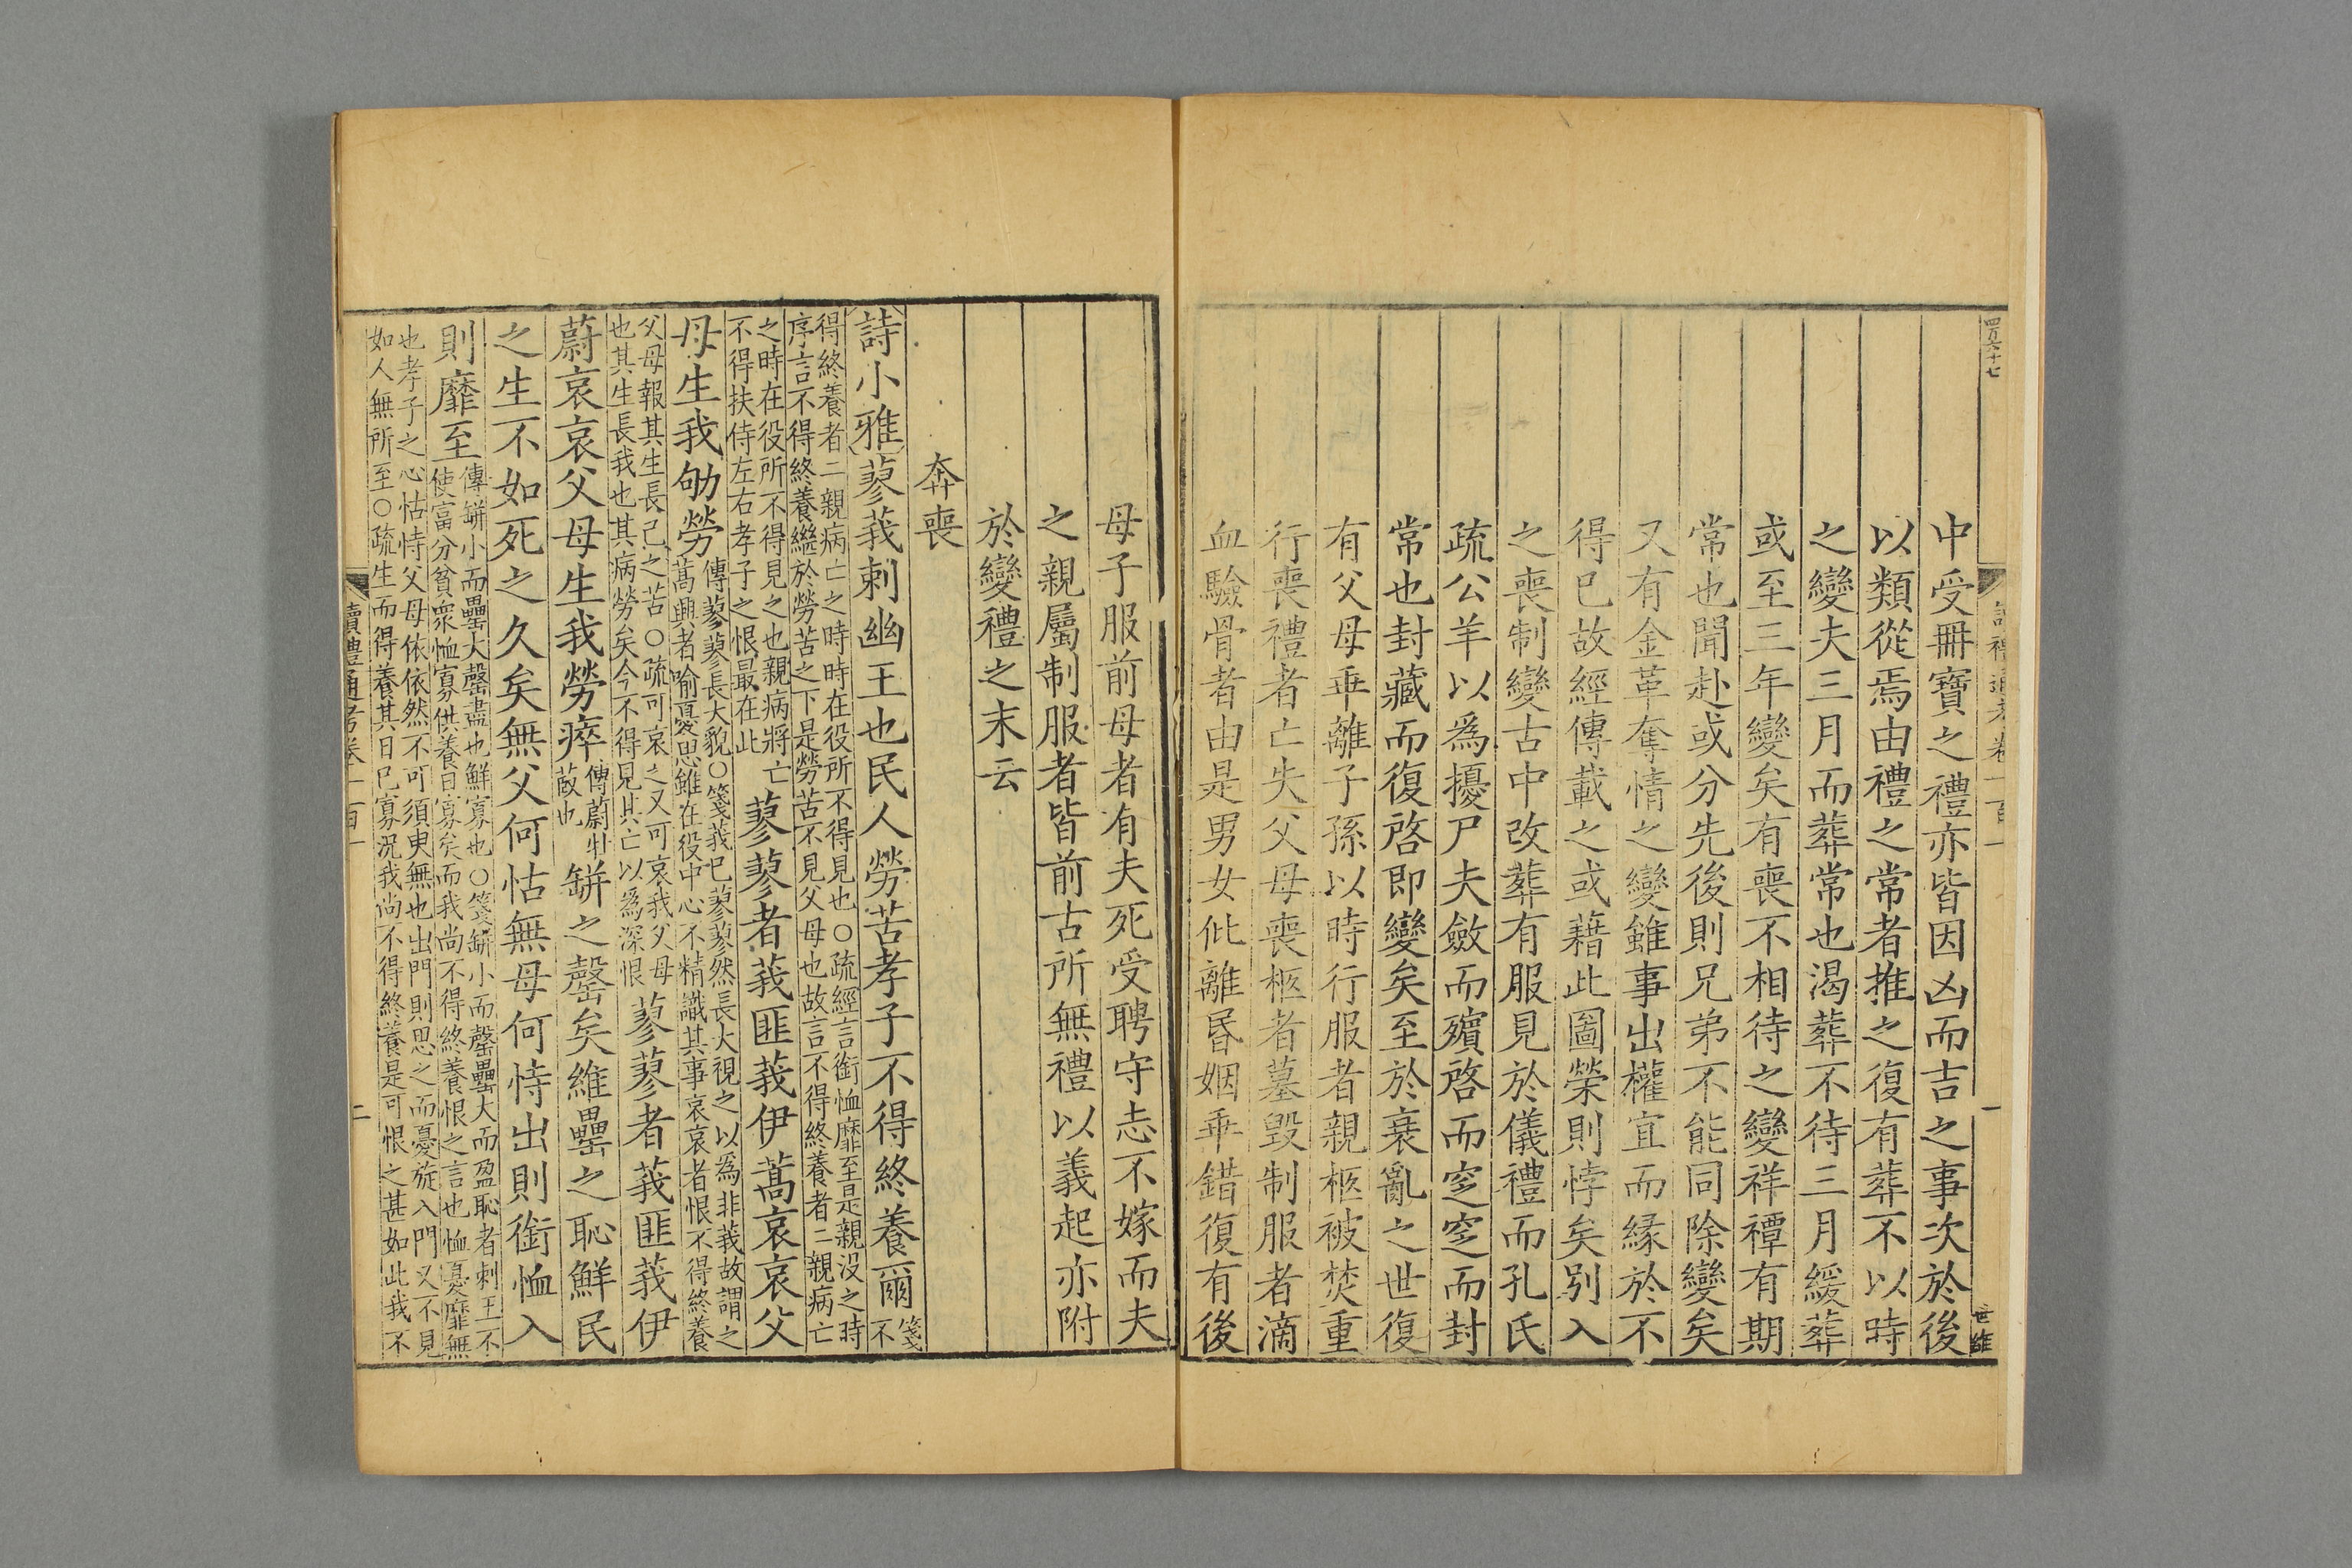 四百六十七
讀禮通考卷一百一
一
世維
中受冊寶之禮亦皆因凶而吉之事次於後
以類從焉由禮之常者推之復有葬不以時
之變夫三月而葬常也渴葬不待三月緩葬
或至三年變矣有喪不相待之變祥禫有期
常也聞赴或分先後則兄弟不能同除變矣
又有金革奪情之變雖事出權宜而緣於不
得已故經傳載之或藉此圖榮則悖矣別入
之喪制變古中改葬有服見於儀禮而孔氏
疏公羊以為擾尸夫斂而殯啓而窆窆而封
常也封藏而復啓即變矣至於衰亂之世復
有父母乖離子孫以時行服者親柩被焚重
行喪禮者亡失父母喪柩者墓毀制服者滴
血驗骨者由是男女仳離昏姻乖錯復有後
母子服前母者有夫死受聘守志不嫁而夫
之親屬制服者皆前古所無禮以義起亦附
於變禮之末云
奔喪
詩小雅蓼莪刺幽王也民人勞苦孝子不得終養爾箋不
得終養者二親病亡之時時在役所不得見也○疏經言銜恤靡至是親沒之時
序言不得終養繼於勞苦之下是勞苦不見父母也故言不得終養者二親病亡
之時在役所不得見之也親病將亡
不得扶侍左右孝子之恨最在此
蓼蓼者莪匪莪伊蒿哀哀父
母生我劬勞
傳蓼蓼長大貌○箋莪已蓼蓼然長大視之以為非莪故謂之
蒿興者喻憂思雖在役中心不精識其事哀哀者恨不得終養
父母報其生長己之苦○疏可哀之又可哀我父母
也其生長我也其病勞矣今不得見其亡以為深恨
蓼蓼者莪匪莪伊
蔚哀哀父母生我勞瘁
傳蔚牡
菣也
缾之罄矣維罍之恥鮮民
之生不如死之久矣無父何怙無母何恃出則銜恤入
則靡至
傳缾小而罍大罄盡也鮮寡也○箋缾小而罄罍大而盈恥者刺王不
使富分貧衆恤寡供養日寡矣而我尚不得終養恨之言也恤憂靡無
也孝子之心怙恃父母依依然不可須臾無也出門則思之而憂旋入門又不見
如人無所至○疏生而得養其日已寡況我尚不得終養是可恨之甚如此我不
讀禮通考卷一百一
二